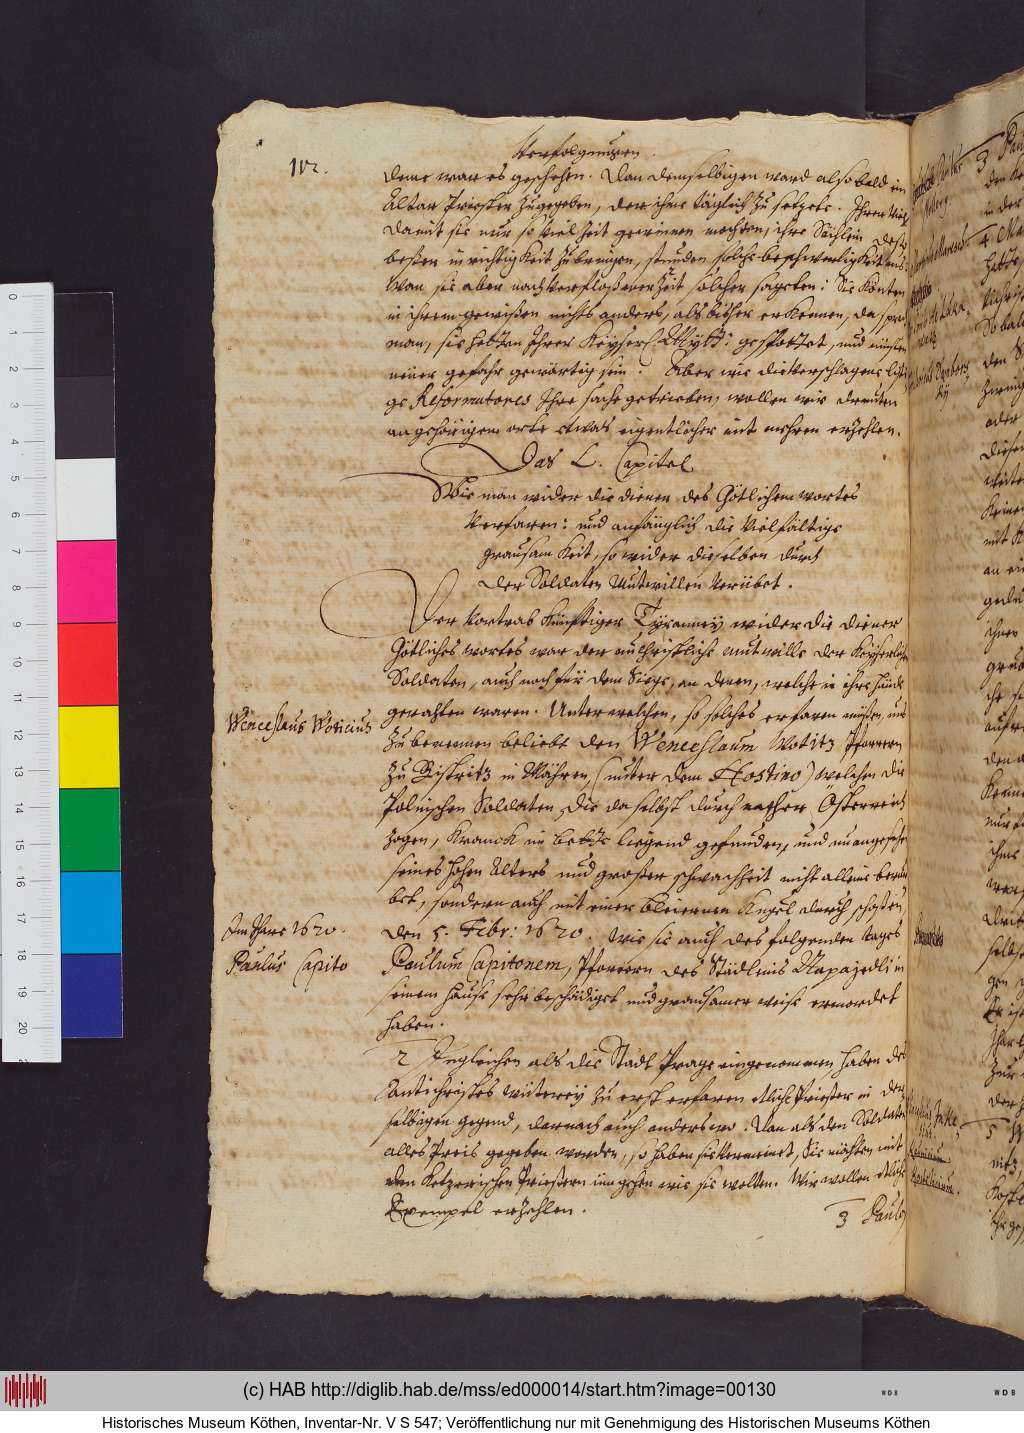 Verfolgungen.
112.
deme war es geschehen. Dan demselbigen ward also bald ein
Altar Priester zugegeben, der ihme täglich zu setzete. Ihrer viel
damit sie nur so viel Zeit gewinnen mochten, ihre Sächlein desto
besten in richtigkeit zubringen, stunden solche beschwerligkeit aus:
Wan sie aber nach verfloßener Zeit solcher sageten: Sie könten
in ihrem gewißen nichts anders, als bisher erkennen, da sprach
man, sie hetten Ihrer Keyserl. Mytt: gespottet, und müsten
neuer gefahr gewärtig sein. Aber wie die verschlagene listi
ge Reformatores Ihre sache getrieben, wollen wir drunten
an gehörigem orte etwas eigentlicher mit mehren erzehlen.
Das L. Capitel
Wie man wider die diener des Götlichen wortes
Verfaren: und anfänglich die Vielfältige
grausamkeit, so wider dieselben durch
der Soldaten Mutwillen verübet.
Der Vortrab künfftiger Tyranney wider die diener
Götliches wortes war der unchristliche mutwille der Keyserlichen
Soldaten, auch noch für dem Siege, an denen, welche in ihre hände
gerahten waren. Unter welchen, so solches erfaren müßen, uns
Wenceslaus Woticius
zubenennen beliebt den Wenceslaum Wotitz Pfarrern
zu Bistritz in Mähren, (unter dem Hostino) welchen die
Polnischen Soldaten, die daselbst durch nacher Österreich
zogen, Kranck im bette liegend gefunden, und unangesehen
seines hohen Alters und großer schwachheit nicht alleine berau
bet, sondern auch mit einer bleiernen Kugel durch schoßen,
Im Jhare 1620.
den 5. Febr: 1620. Wie sie auch des folgenden tages
Paulus Capito
Paulum Capitonem, Pfarrern des Städleins Napajedli in
seinem Hause sehr beschädiget und grausamer weise ermordet
haben.
2 Ingleichen als die Stadt Prage eingenommen haben des
Antichristes wüterey zu erst erfaren etliche Priester in der
selbigen gegend, darnach auch anderswo. Dan als den Soldaten
alles Preis gegeben worden, so haben sie vermeinet, Sie möchten mit
den Ketzerischen Priestern umgehen wie sie wolten. Wir wollen etliche
Exempel erzehlen.
3 Paulus
(c) HAB http://diglib.hab.de/mss/ed000014/start.htm?image=00130
Historisches Museum Köthen, Inventar-Nr. V S 547; Veröffentlichung nur mit Genehmigung des Historischen Museums Köthen